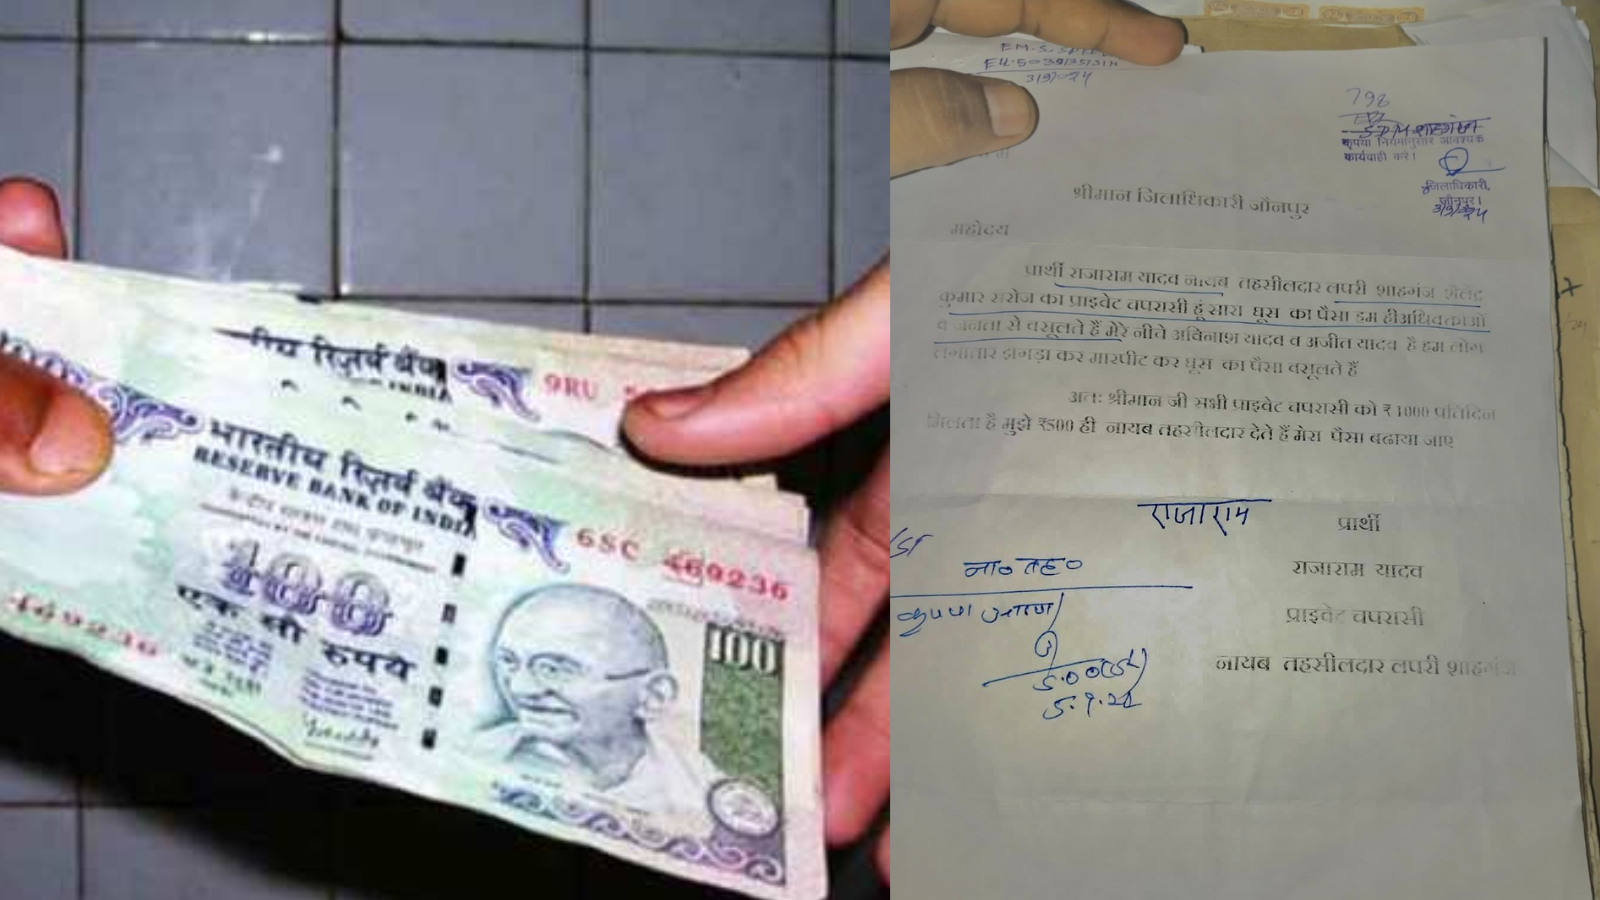 रिज़र्व बैंक
INDIA
9RU
भारतीय रिज़र्व बैंक
RESERVE BANK OF INDIA
6SC 469236
100
एक सौ रुपये
100
469236
3/9/24
798
SDM शाहगंज
कृपया नियमानुसार आवश्यक
कार्यवाही करें।
जिलाधिकारी,
जौनपुर।
3/9/24
श्रीमान जिलाधिकारी जौनपुर
महोदय
प्रार्थी राजाराम यादव नायब तहसीलदार लपरी शाहगंज शैलेंद्र
कुमार सरोज का प्राइवेट चपरासी हूं सारा घूस का पैसा हम हीअधिवक्ताओं
व जनता से वसूलते हैं मेरे नीचे अविनाश यादव व अजीत यादव है हम लोग
लगातार झगड़ा कर मारपीट कर घूस का पैसा वसूलते हैं
अतः श्रीमान जी सभी प्राइवेट चपरासी को ₹1000 प्रतिदिन
मिलता है मुझे ₹500 ही नायब तहसीलदार देते हैं मेरा पैसा बढाया जाए
राजाराम
प्रार्थी
ना० तह०
राजाराम यादव
प्राइवेट चपरासी
नायब तहसीलदार लपरी शाहगंज
5.9.24